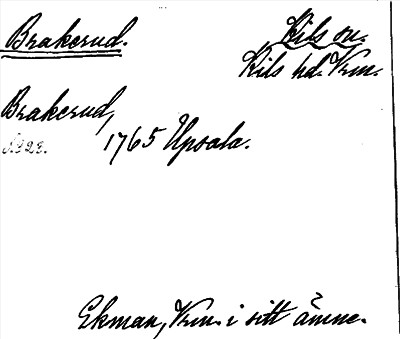 Brakerud.
Kils sn.
Kils hd. Vrm.
Brakerud,
1765 Upsala.
Ekman, Vrm. i sitt ämne.